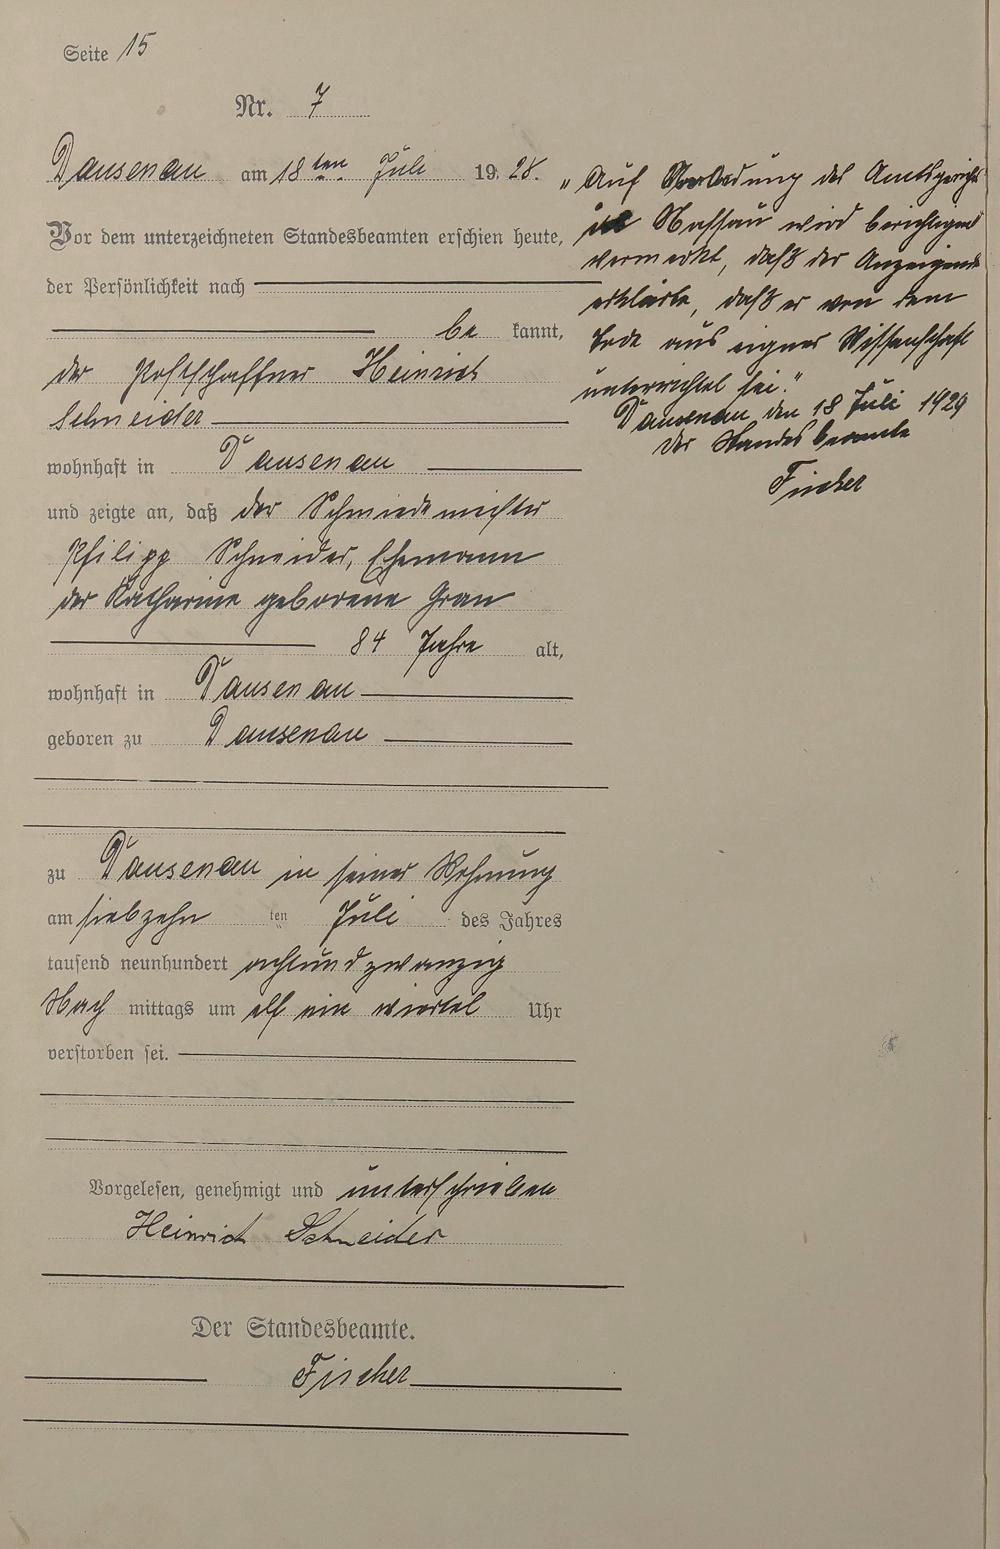 Seite 15
Nr. 7
Dausenau am 18ten Juli 1928.
Vor dem unterzeichneten Standesbeamten erschien heute,
der Persönlichkeit nach
be kannt,
der Postschaffner Heinrich
Schneider
wohnhaft in Dausenau
und zeigte an, daß der Schmiedemeister
Philipp Schneider, Ehemann
der Katharine geborene
84 Jahre alt,
wohnhaft in Dausenau
geboren zu Dausenau
zu Dausenau in seiner Wohnung
am siebzehn ten Juli des Jahres
tausend neunhundert achtundzwanzig
Nach mittags um elf ein viertel Uhr
verstorben sei.
Vorgelesen, genehmigt und unterschrieben
Heinrich Schneider
Der Standesbeamte.
Fischer
„Auf Anordnung des Amtsgerichts
in Nassau wird berichtigend
vermerkt, daß der Anzeigende
erklärte, daß er von dem
Tode aus eigner Wissenschaft
unterrichtet sei."
Dausenau, den 18 Juli 1929
Der Standesbeamte
Fischer